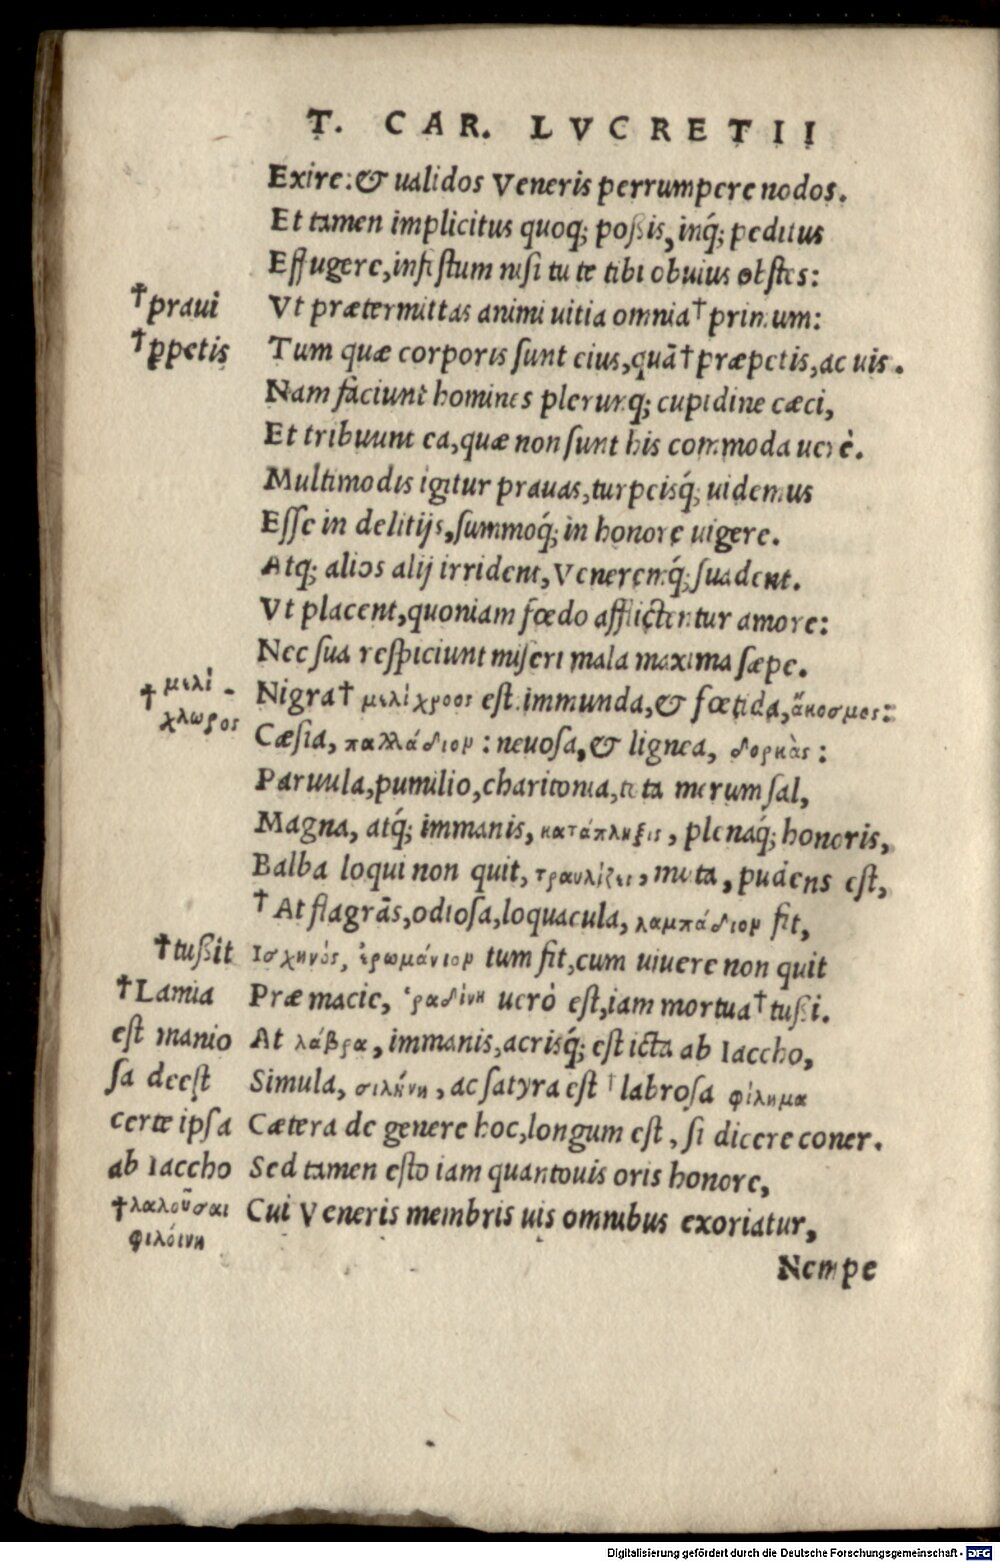 T. CAR. LVCRETII
Exire: & ualidos Veneris perrumpere nodos.
Et tamen implicitus quoq; poßis, inq́; peditus
Effugere, infestum nisi tu te tibi obuius obstes:
†praui
Vt prætermittas animi uitia omnia † primum:
†ꝓpetis
Tum quæ corporis sunt eius, quã † præpetis, ac uis.
Nam faciunt homines plerunq; cupidine cæci,
Et tribuunt ea, quæ non sunt his commoda uerè.
Multimodis igitur prauas, turpeisq́; uidemus
Esse in delitijs, summoq́; in honore uigere.
Atq; alios alij irrident, Veneremq́; suadent.
Vt placent, quoniam fœdo afflictentur amore:
Nec sua respiciunt miseri mala maxima sæpe.
† μελί-
χλωρος
Nigra † μελίχροος est. immunda, & fœtida, ἄκοσμος:
Cæsia, παλλάδιον: neuosa, & lignea, δορκὰς:
Paruula, pumilio, charitonia, tota merum sal,
Magna, atq́; immanis, κατάπληξις, plenaq́; honoris,
Balba loqui non quit, τραυλίζει, muta, pudens est,
† At flagrãs, odiosa, loquacula, λαμπάδιον fit,
†tußit
Ισχνὸς, ἐρωμάνιον tum fit, cum uiuere non quit
†Lamia
Præ macie, ῥαδινὴ uerò est, iam mortua † tußi.
est manio
At λάβρα, immanis, acrisq́; est icta ab Iaccho,
sa deest
Simula, σιλήνη, ac satyra est † labrosa φίλημα
certe ipsa
Cætera de genere hoc, longum est, si dicere coner.
ab Iaccho
Sed tamen esto iam quantouis oris honore,
†λαλοῦσαι
Cui Veneris membris uis omnibus exoriatur,
φιλόινη
Nempe
Digitalisierung gefördert durch die Deutsche Forschungsgemeinschaft - DFG